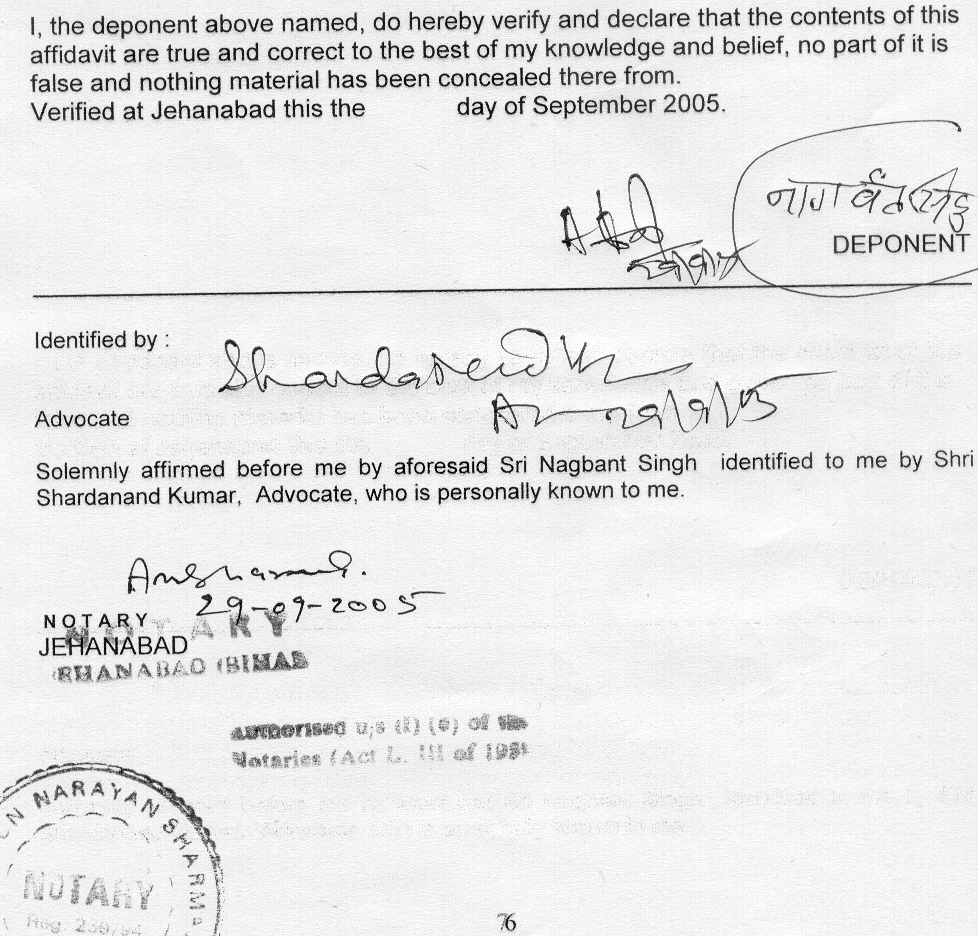 I, the deponent above named, do hereby verify and declare that the contents of this
affidavit are true and correct to the best of my knowledge and belief, no part of it is
false and nothing material has been concealed there from.
Verified at Jehanabad this the day of September 2005.
DEPONENT
Identified by :
Advocate
Solemnly affirmed before me by aforesaid Sri Nagbant Singh identified to me by Shri
Shardanand Kumar, Advocate, who is personally known to me.
29-09-2005
NOTARY
NOTARY
JEHANABAD
Authorised u/s of the
Notaries (Act L. III of
NARAYAN SHARMA
NOTARY
Reg.
76